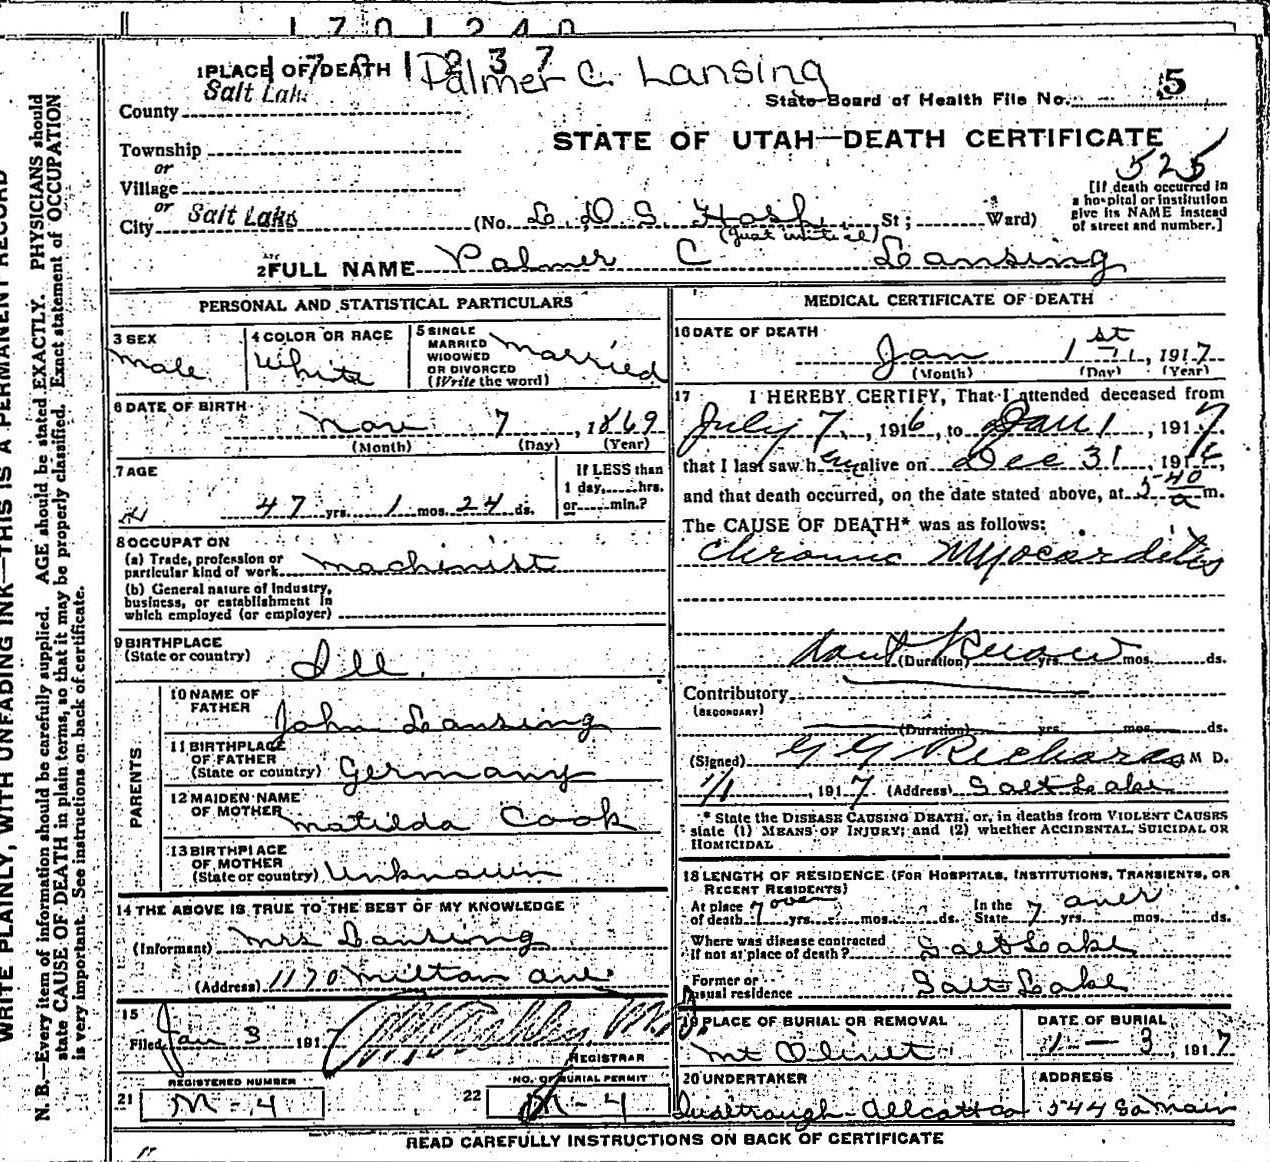 1701240
1701237
Palmer C. Lansing
1 PLACE OF DEATH
Salt Lake
County
State Board of Health File No. 5
STATE OF UTAH—DEATH CERTIFICATE
525
Township
or
Village
or
City Salt Lake (No. L. D. S. Hosp. St; Ward)
[If death occurred in
a hospital or institution
give its NAME instead
of street and number.]
(just initial)
2 FULL NAME Palmer C Lansing
PERSONAL AND STATISTICAL PARTICULARS
3 SEX
male
4 COLOR OR RACE
White
5 SINGLE
MARRIED
WIDOWED
OR DIVORCED
(Write the word)
married
6 DATE OF BIRTH
Nov 7, 1869
(Month) (Day) (Year)
7 AGE
47 yrs. 1 mos. 24 ds.
If LESS than
1 day,......hrs.
or......min.?
8 OCCUPATION
(a) Trade, profession or
particular kind of work machinist
(b) General nature of Industry,
business, or establishment in
which employed (or employer)
9 BIRTHPLACE
(State or country) Ill.
PARENTS
10 NAME OF
FATHER John Lansing
11 BIRTHPLACE
OF FATHER
(State or country) Germany
12 MAIDEN NAME
OF MOTHER Matilda Cook
13 BIRTHPLACE
OF MOTHER
(State or country) Unknown
14 THE ABOVE IS TRUE TO THE BEST OF MY KNOWLEDGE
(Informant) Mrs Lansing
(Address) 1170 Milton ave
15
Filed Jan 3 1917
REGISTRAR
REGISTERED NUMBER
21 M-4
NO. OF BURIAL PERMIT
22 M-4
MEDICAL CERTIFICATE OF DEATH
16 DATE OF DEATH
Jan 1st, 1917
(Month) (Day) (Year)
17 I HEREBY CERTIFY, That I attended deceased from
July 7, 1916, to Jan 1, 1917
that I last saw him alive on Dec 31, 1916,
and that death occurred, on the date stated above, at 5 40 a m.
The CAUSE OF DEATH* was as follows:
Chronic Myocarditis
dont know
(Duration) yrs. mos. ds.
Contributory
(SECONDARY)
(Duration) yrs. mos. ds.
(Signed) G G Richards M D.
1/1, 1917 (Address) Salt Lake
* State the DISEASE CAUSING DEATH, or, in deaths from VIOLENT CAUSES
state (1) MEANS OF INJURY; and (2) whether ACCIDENTAL, SUICIDAL OR
HOMICIDAL
18 LENGTH OF RESIDENCE (FOR HOSPITALS, INSTITUTIONS, TRANSIENTS, OR
RECENT RESIDENTS)
At place over In the over
of death 7 yrs. mos. ds. State 7 yrs. mos. ds.
Where was disease contracted
If not at place of death? Salt Lake
Former or
usual residence Salt Lake
19 PLACE OF BURIAL OR REMOVAL
Mt Olivet
DATE OF BURIAL
1 — 3, 1917
20 UNDERTAKER
ADDRESS
544 So Main
READ CAREFULLY INSTRUCTIONS ON BACK OF CERTIFICATE
WRITE PLAINLY, WITH UNFADING INK—THIS IS A PERMANENT RECORD
N. B.—Every item of information should be carefully supplied. AGE should be stated EXACTLY. PHYSICIANS should
state CAUSE OF DEATH in plain terms, so that it may be properly classified. Exact statement of OCCUPATION
is very important. See instructions on back of certificate.